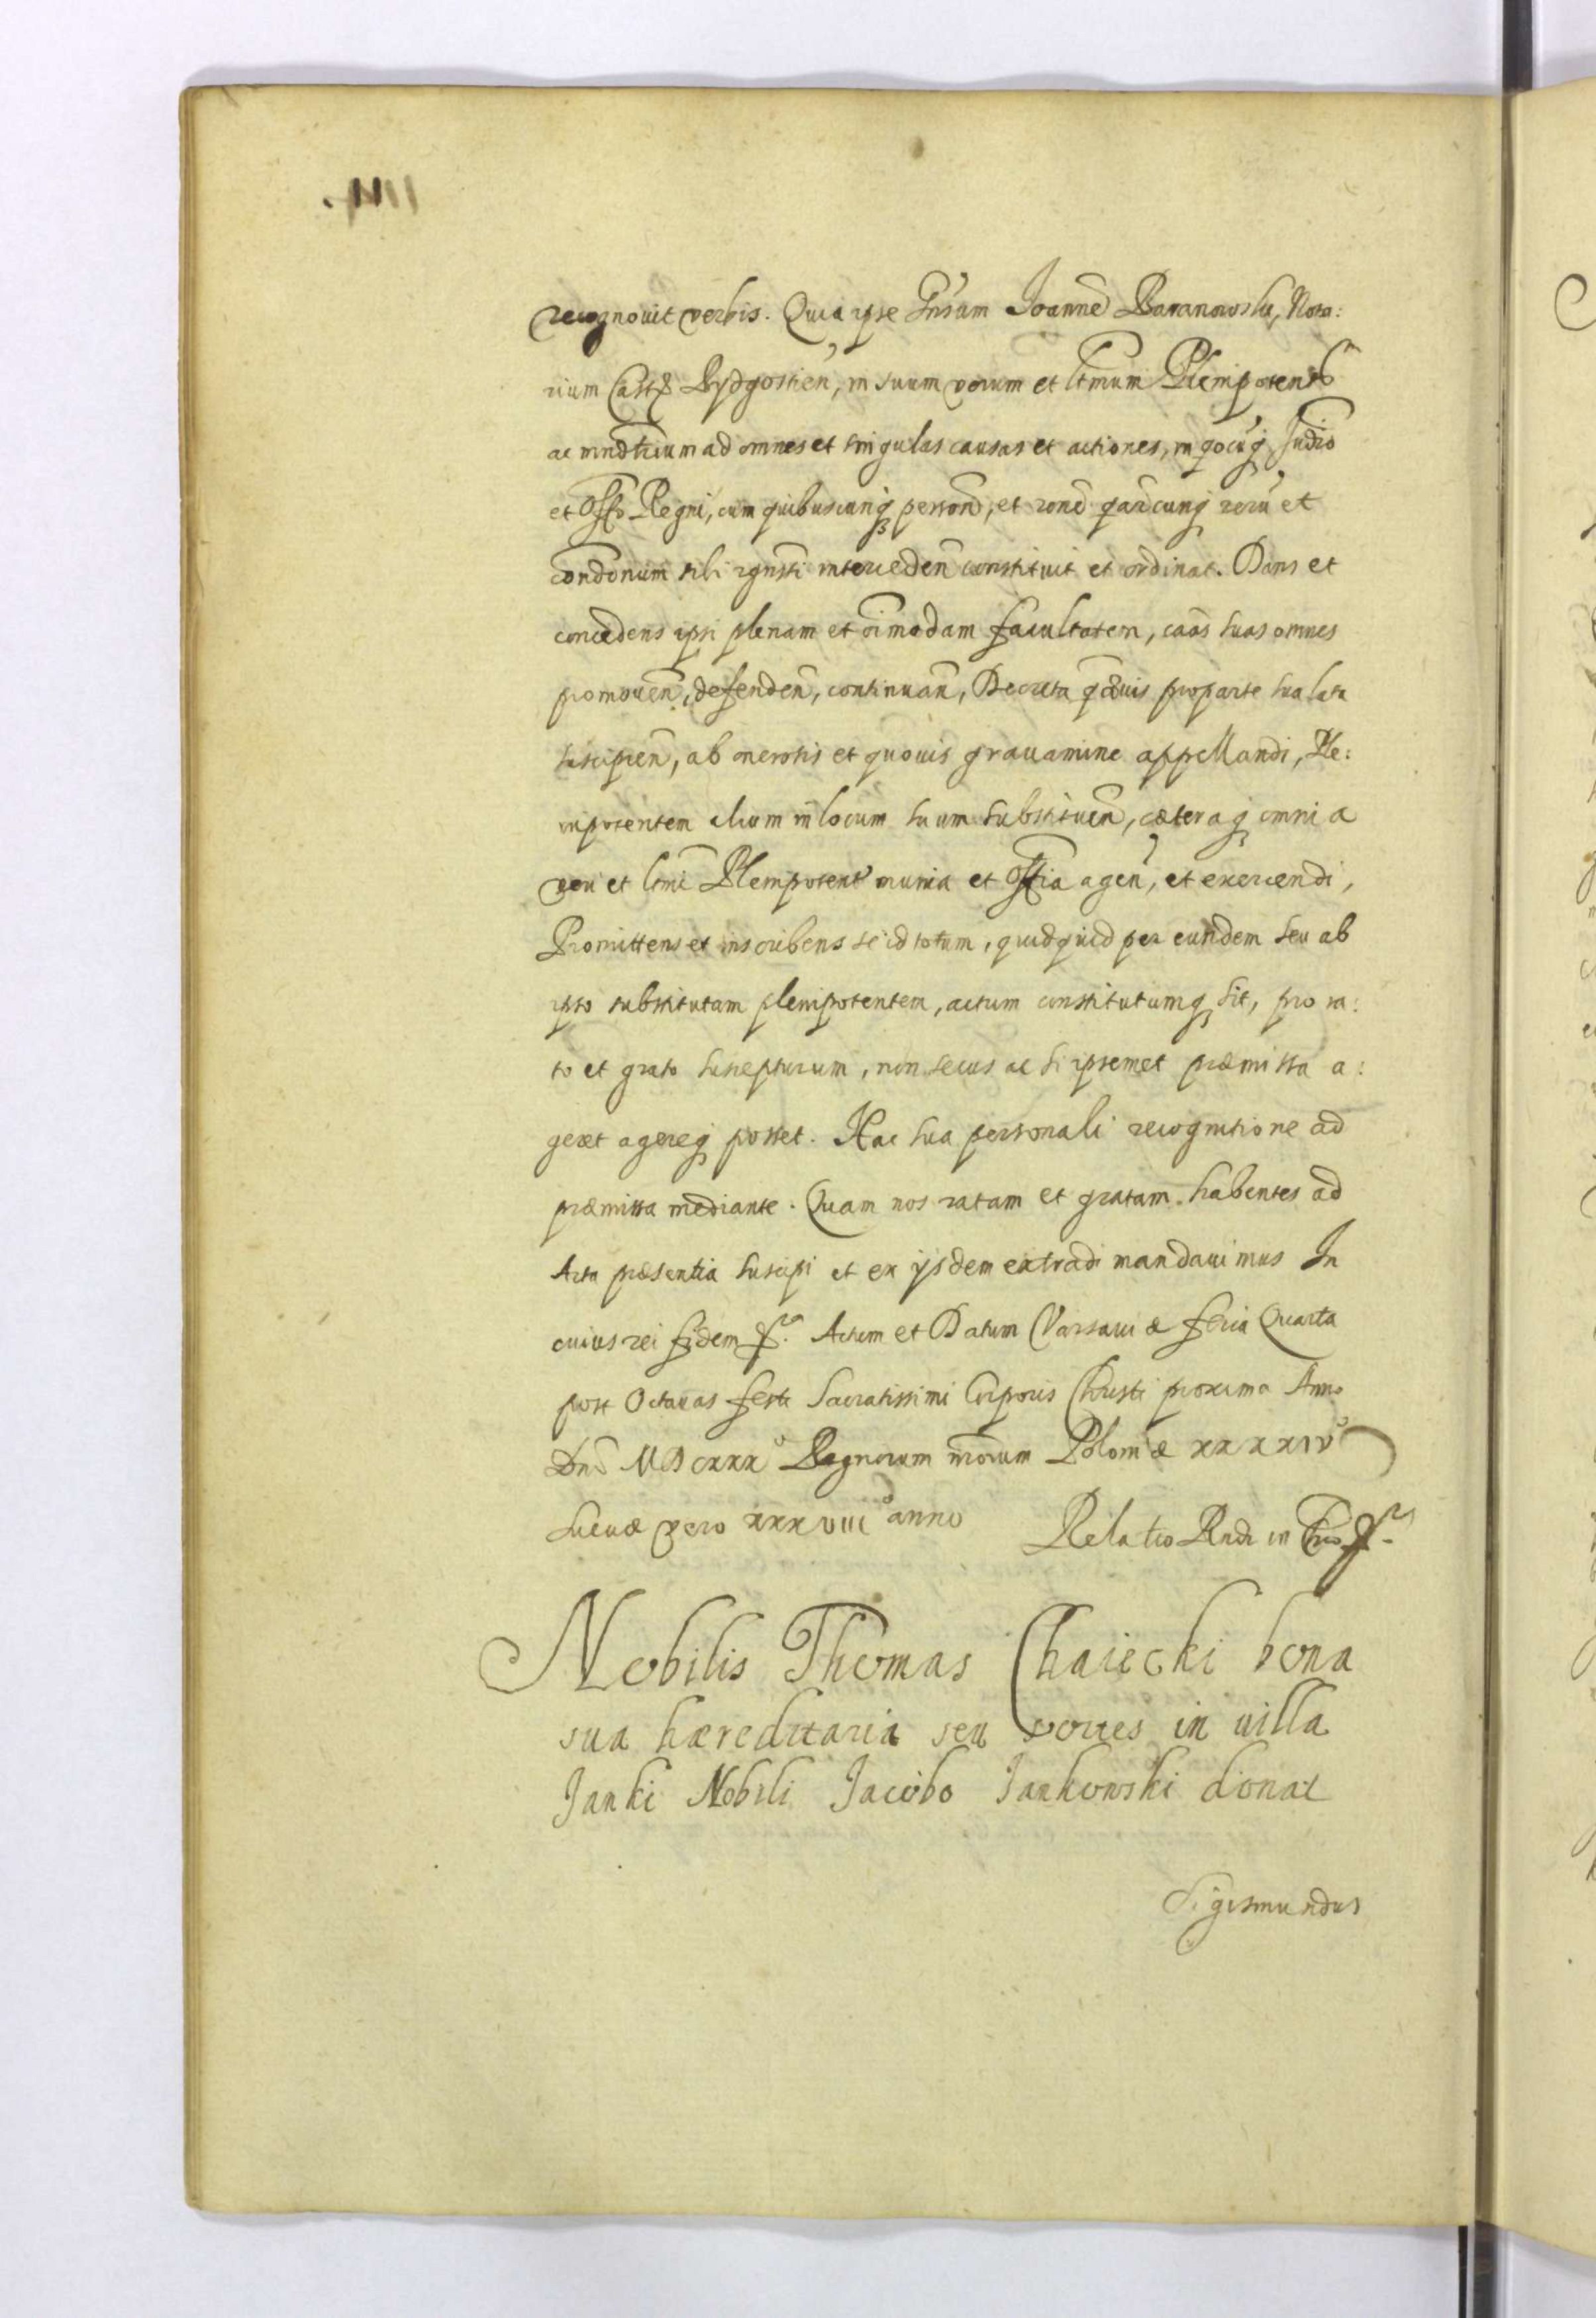 recognouit verbis. Quia ipse Gnsum Joannē Baranowski, Nota:
rium Castr Bydgostien̄, in suum verum et ltmum Plenipotentē
ac mndtrium ad omnes et singulas causas et actiones, in qocuq Judio
et Offo Regni, cum quibuscunq person̄, et rone qarcunq reru et
condonum sibi ignsti interceden̄ constituit et ordinat. Dans et
concedens ipsi plenam et oimodam facultatem, caas suas omnes
promouen̄, defenden̄, continuan̄, Decreta quis pro parte sua lata
suscipien̄, ab onerosis et quouis grauamine appellandi, Ple:
nipotentem alium in locum suum substituen̄, cæteraq omnia
veri et ltmi Plenipotent munia et offia agen̄, et exercendi,
Promittens et inscribens se id totum, quidquid per eundem seu ab
ipso substitutam plenipotentem, actum constitutumq sit, pro ra:
to et grato suscepturum, non secus ac si ipsemet præmissa a:
geret agereq posset. Hac sua personali recognitione ad
præmissa mediante. Quam nos ratam et gratam habentes ad
Acta præsentia suscipi et ex ijsdem extradi mandauimus In
cuius rei fidem Actum et Datum Varsauiæ feria Quarta
post Octauas festi Sacratissimi Corporis Christi proxima Anno
Dni MDCXXX Regnorum nrorum Poloniæ XXXXIV
Sueciæ vero XXXVIII anno Relatio Rndi in Chro
Nobilis Thomas Chaiecki bona
sua hæreditaria seu sortes in uilla
Janki Nobili Jacobo Jankowski donat
Sigismundus